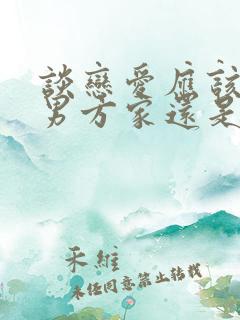 談戀愛應該
男方家還是
禾維
未經同意禁止轉載